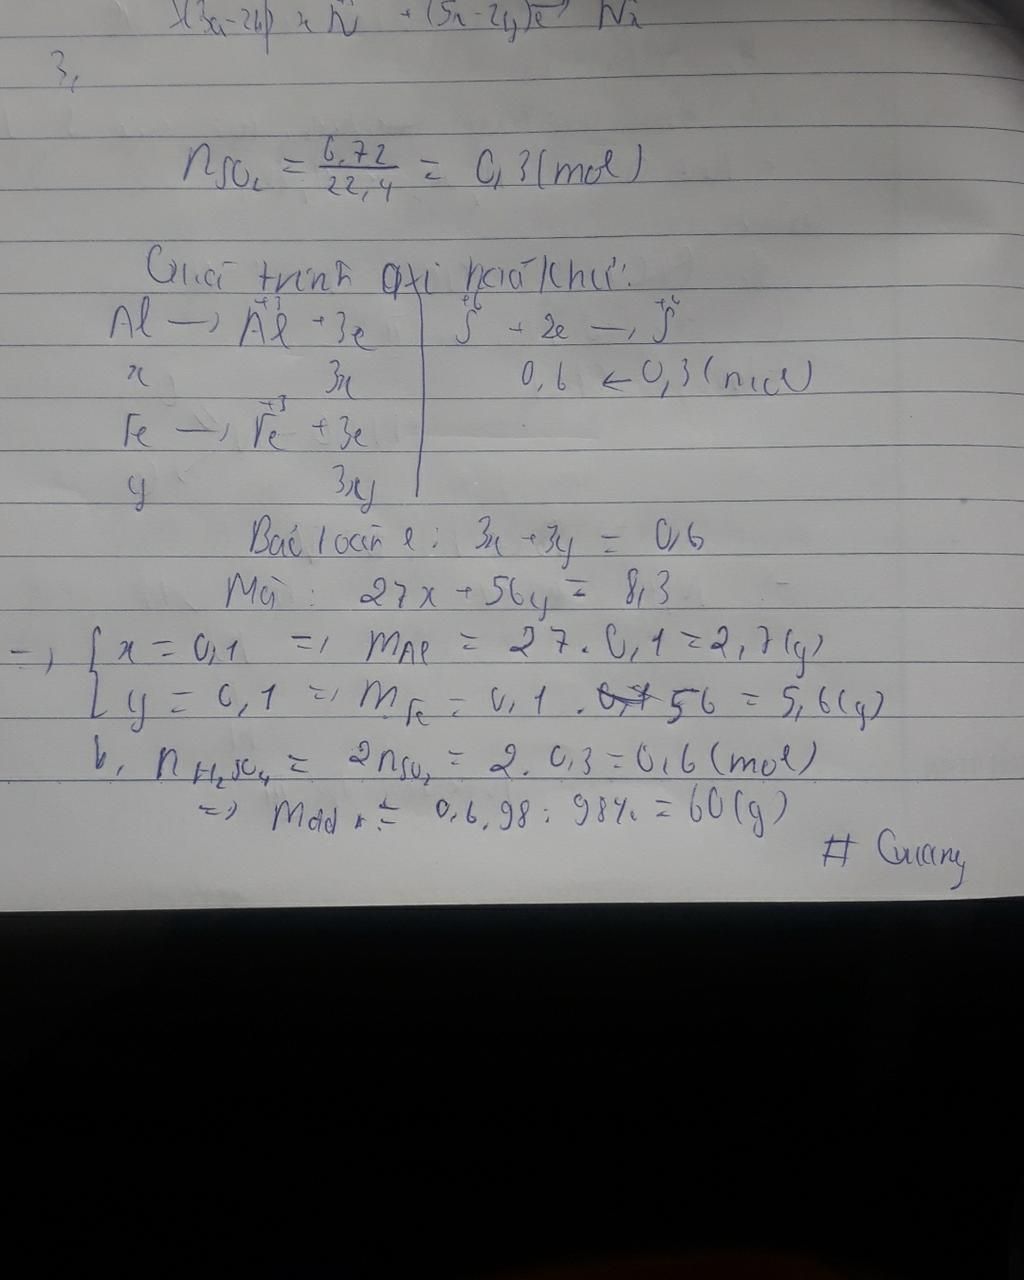 3,
nSO₂ = 6,72/22,4 = 0,3(mol)
Quá trình oxi hoá khử:
Al → Al⁺³ + 3e | S⁺⁶ + 2e → S⁺⁴
x 3x | 0,6 ← 0,3(mol)
Fe → Fe⁺³ + 3e
y 3y
Bảo toàn e: 3x + 3y = 0,6
Mà: 27x + 56y = 8,3
=> { x = 0,1 => mAl = 27.0,1 = 2,7(g)
y = 0,1 => mFe = 0,1.56 = 5,6(g)
b, nH₂SO₄ = 2nSO₂ = 2.0,3 = 0,6(mol)
=> mdd = 0,6.98:98% = 60(g)